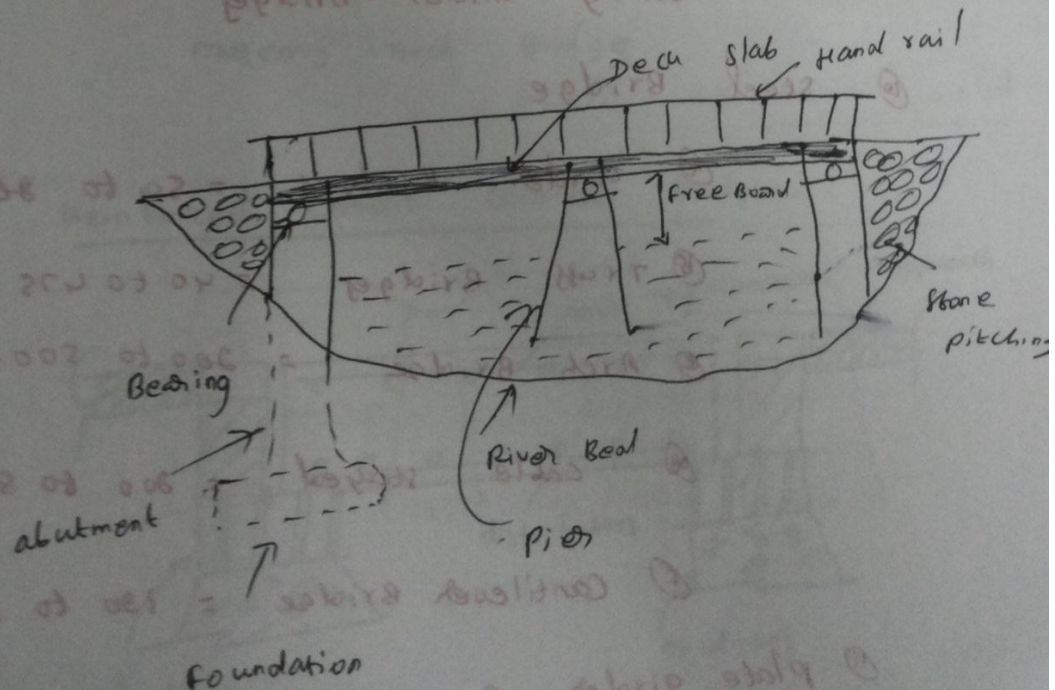 Deck slab
Hand rail
Free Board
Stone
pitching
Bearing
River Bed
abutment
Pier
Foundation